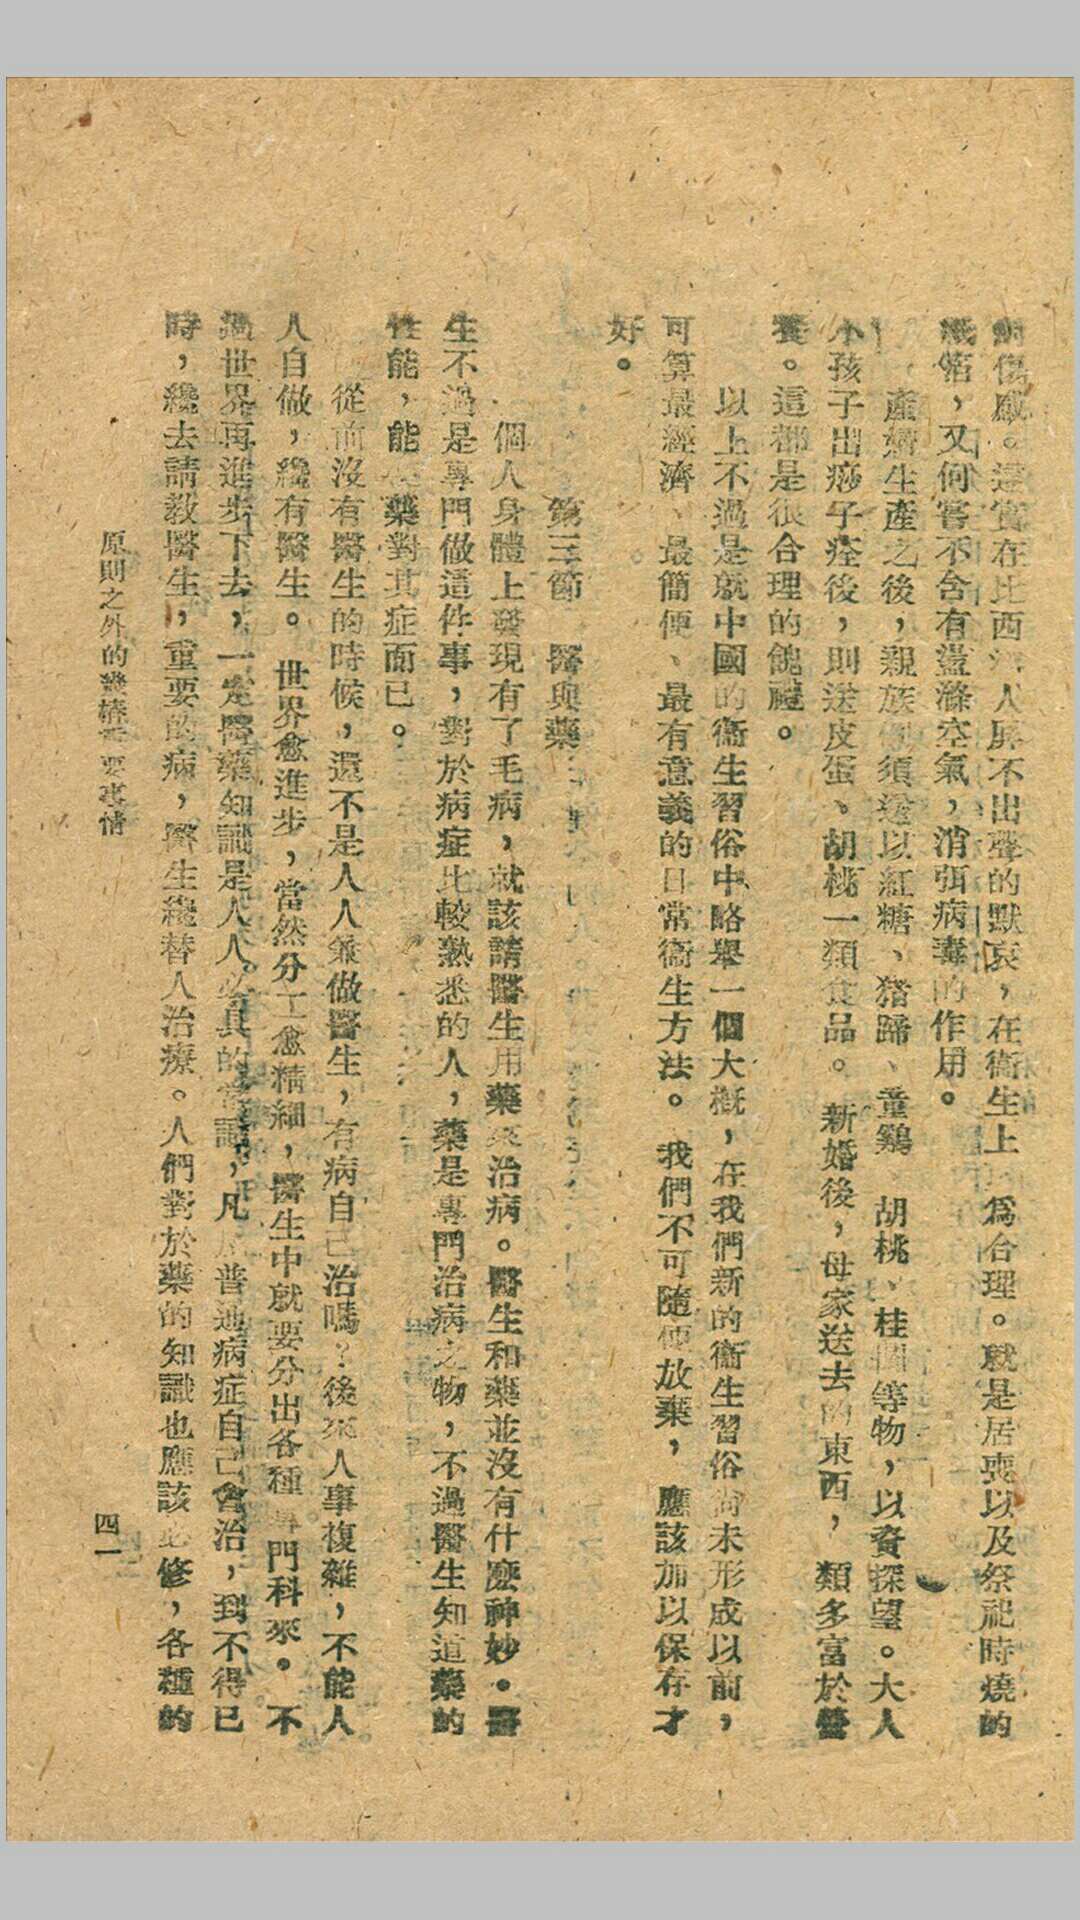 傷感。這實在比西洋人屏不出聲的默哀,在衞生上 爲合理。就是居喪以及祭祀時燒的
紙箔,又何嘗不含有盪滌空氣,消弭病毒的作用。
產婦生產之後,親族 須送以紅糖、猪蹄、童鷄 胡桃、桂圓等物,以資探望。大人
小孩子出痧子痊後,則送皮蛋、胡桃一類食品。新婚後,母家送去的東西,類多富於營
養。這都是很合理的餽禮。
以上不過是就中國的衞生習俗中略舉一個大概,在我們新的衞生習俗尚未形成以前,
可算最經濟、最簡便、最有意義的日常衞生方法。我們不可隨便放棄,應該加以保存才
好。
第三節 醫與藥
個人身體上發現有了毛病,就該請醫生用藥來治病。醫生和藥並沒有什麼神妙。醫
生不過是專門做這件事,對於病症比較熟悉的人,藥是專門治病之物,不過醫生知道藥的
性能,能 藥對其症而已。
從前沒有醫生的時候,還不是人人兼做醫生,有病自己治嗎?後來人事複雜,不能人
人自做,纔有醫生。世界愈進步,當然分工愈精細,醫生中就要分出各種專門科來。不
過世界再進步下去,一定醫藥知識是人人必具的常識,凡 普通病症自己會治,到不得已
時,纔去請教醫生,重要的病,醫生纔替人治療。人們對於藥的知識也應該必修,各種的
原則之外的幾樁 要事情
四一